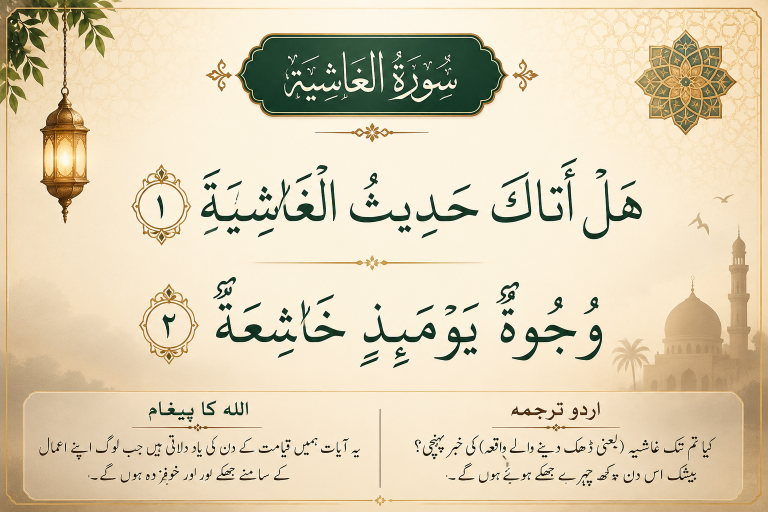 سُورَةُ الغَاشِيَة
هَلْ أَتاكَ حَدِيثُ الْغَاشِيَةِ ١
وُجُوهٌ يَوْمَئِذٍ خَاشِعَةٌ ٢
اردو ترجمہ
کیا تم تک غاشیہ (یعنی ڈھک دینے والے واقعہ) کی خبر پہنچی؟
بیشک اس دن کچھ چہرے جھکے ہوئے ہوں گے۔
الله کا پیغام
یہ آیات ہمیں قیامت کے دن کی یاد دلاتی ہیں جب لوگ اپنے اعمال
کے سامنے جھکے اور خوفزدہ ہوں گے۔